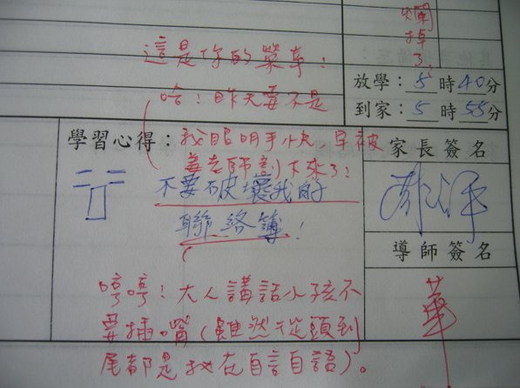 爛掉了.
這是你的榮幸!
放學：5時40分
哈!昨天要不是
到家：5時55分
學習心得：
我眼明手快,早被
老師 下來了!
家長簽名
不要破壞我的
聯絡簿!
導師簽名
哼哼!大人講話小孩不
要插嘴(雖然從頭到
尾都是我在自言自語)。
華